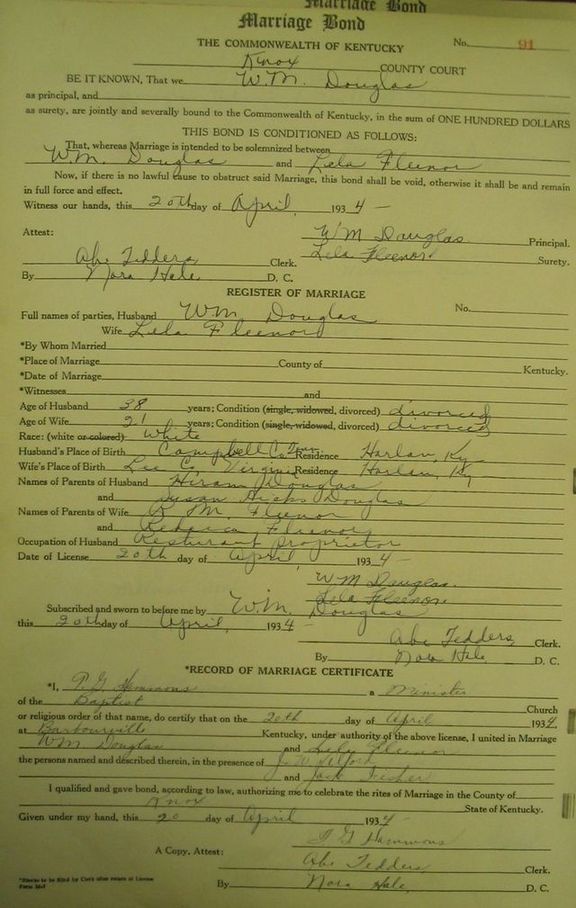 Marriage Bond
Marriage Bond
THE COMMONWEALTH OF KENTUCKY No. 91
Knox COUNTY COURT
BE IT KNOWN, That we W.M. Douglas
as principal, and
as surety, are jointly and severally bound to the Commonwealth of Kentucky, in the sum of ONE HUNDRED DOLLARS
THIS BOND IS CONDITIONED AS FOLLOWS:
That, whereas Marriage is intended to be solemnized between
W.M. Douglas and Lela Fleenor
Now, if there is no lawful cause to obstruct said Marriage, this bond shall be void, otherwise it shall be and remain
in full force and effect.
Witness our hands, this 20th day of April, 1934 -
Attest: W M Douglas Principal.
Abe Tedders Clerk. Lela Fleenor Surety.
By Nora Hale D. C.
REGISTER OF MARRIAGE
Full names of parties, Husband W.M. Douglas No.
Wife Lela Fleenor
*By Whom Married
*Place of Marriage County of Kentucky.
*Date of Marriage
*Witnesses and
Age of Husband 38 years; Condition (single, widowed, divorced) divorced
Age of Wife 21 years; Condition (single, widowed, divorced) divorced
Race: (white or colored) White
Husband's Place of Birth Campbell Co Tenn Residence Harlan, Ky
Wife's Place of Birth Lee Co, Virginia Residence Harlan, Ky
Names of Parents of Husband Hiram Douglas
and Susan Hicks Douglas
Names of Parents of Wife R M. Fleenor
and Rebecca Fleenor
Occupation of Husband Resturant Proprietor
Date of License 20th day of April 1934 -
W M Douglas
Lela Fleenor
Subscribed and sworn to before me by W.M. Douglas
this 20th day of April, 1934 -
Abe Tedders Clerk.
By Nora Hale D. C.
*RECORD OF MARRIAGE CERTIFICATE
*I, P G Hammons a Minister
of the Baptist Church
or religious order of that name, do certify that on the 20th day of April 1934
at Barbourville Kentucky, under authority of the above license, I united in Marriage
W M Douglas and Lela Fleenor
the persons named and described therein, in the presence of J. W.
and Jack
I qualified and gave bond, according to law, authorizing me to celebrate the rites of Marriage in the County of
Knox State of Kentucky.
Given under my hand, this 20 day of April 1934
P G Hammons
A Copy, Attest: Abe Tedders Clerk.
By Nora Hale, D. C.
*Blanks to be filled by Clerk after return of License